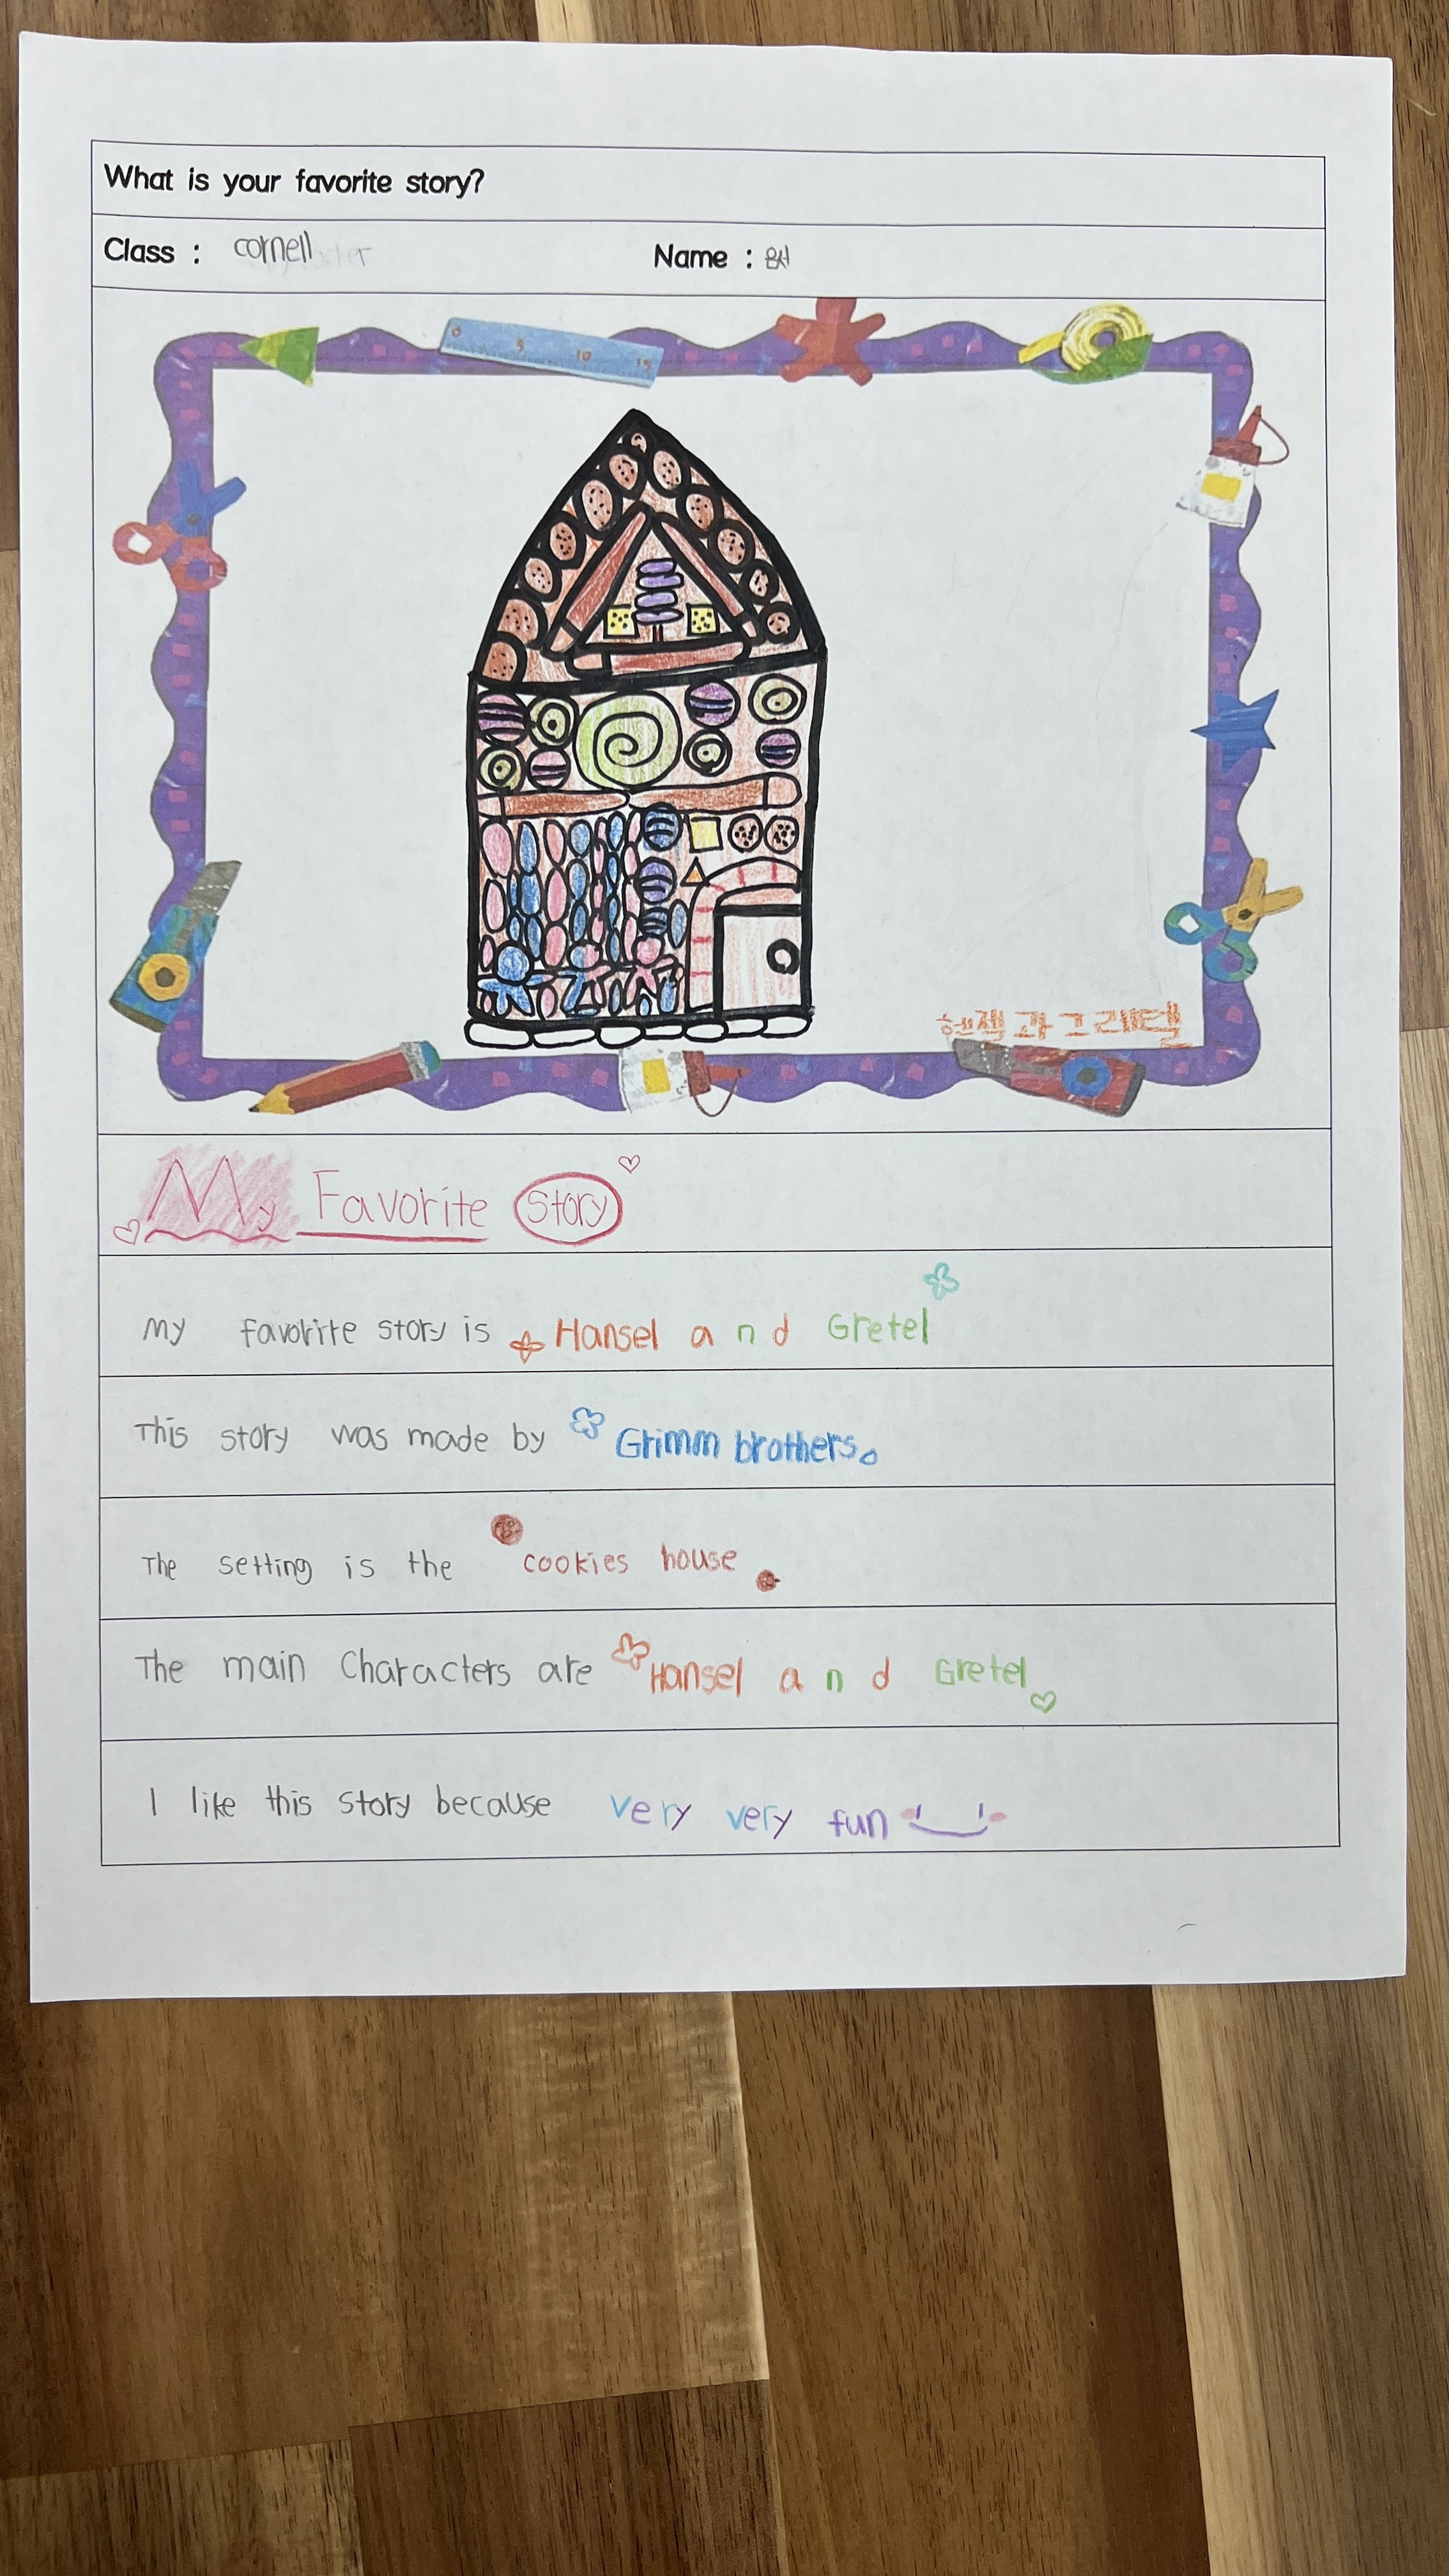 What is your favorite story?
Class : cornell Name :
0 5 10 15
헨젤과그레텔
My Favorite Story
My favorite story is Hansel and Gretel
This story was made by Grimm brothers.
The setting is the cookies house
The main Characters are Hansel and Gretel
I like this story because very very fun